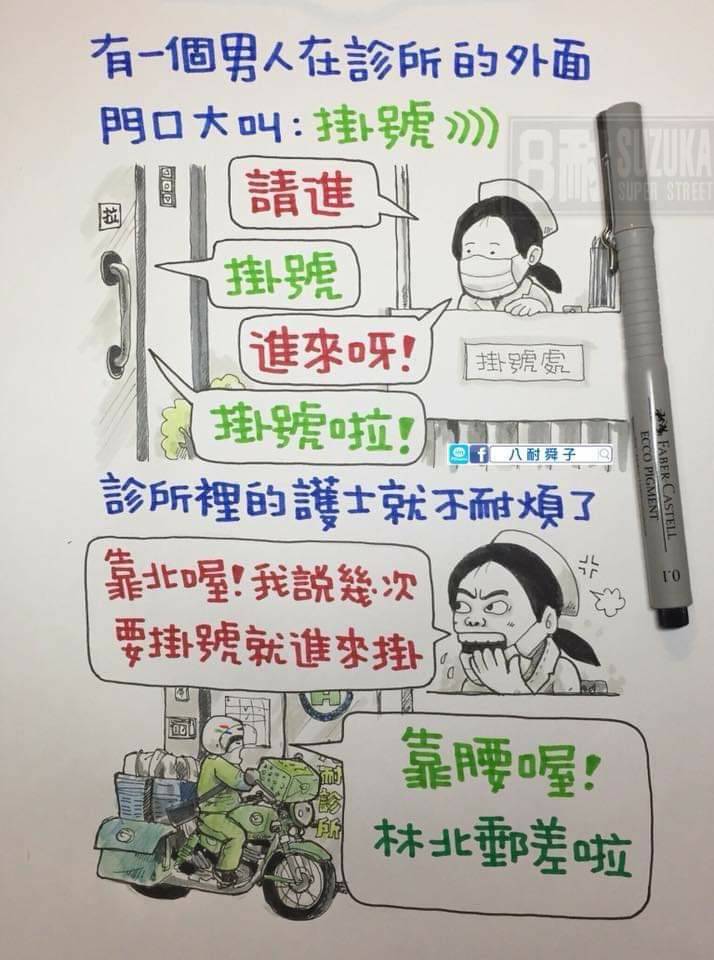 有一個男人在診所的外面
門口大叫:掛號))))
8耐 SUZUKA
SUPER STREET
請進
拉
掛號
進來呀!
掛號處
掛號啦!
八耐舜子
FABER-CASTELL
ECCO PIGMENT
0.1
診所裡的護士就不耐煩了
靠北喔!我說幾次
要掛號就進來掛
靠腰喔!
林北郵差啦
耐診所